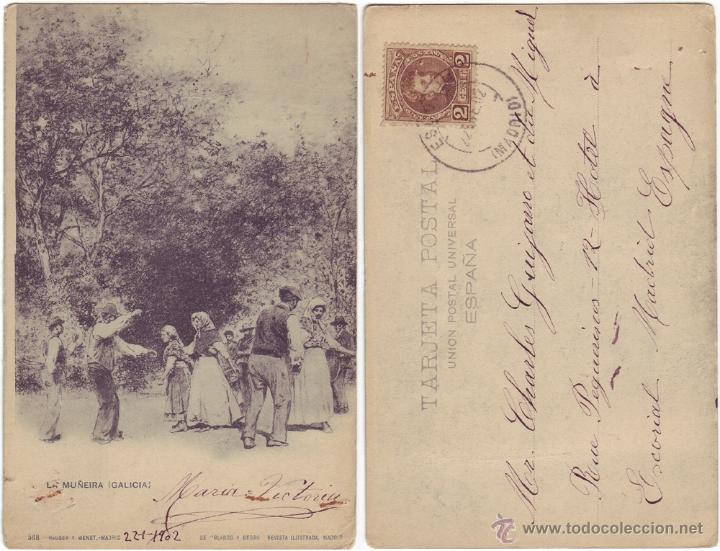 LA MUÑEIRA (GALICIA)
Maria-Victoria
568 HAUSER Y MENET.-MADRID 22-1-1902 DE "BLANCO Y NEGRO" REVISTA ILUSTRADA, MADRID
2 2
(MADRID)
TARJETA POSTAL
UNION POSTAL UNIVERSAL
ESPAÑA
Mr Charles Guijarro et due Miguel
Rue Peguerinos-12-Hotel à
Escorial Madrid Espagne
© todocoleccion
www.todocoleccion.net